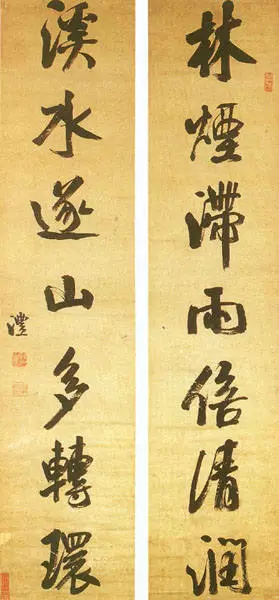 林煙滯雨倍清潤
溪水遂山多轉環
澧